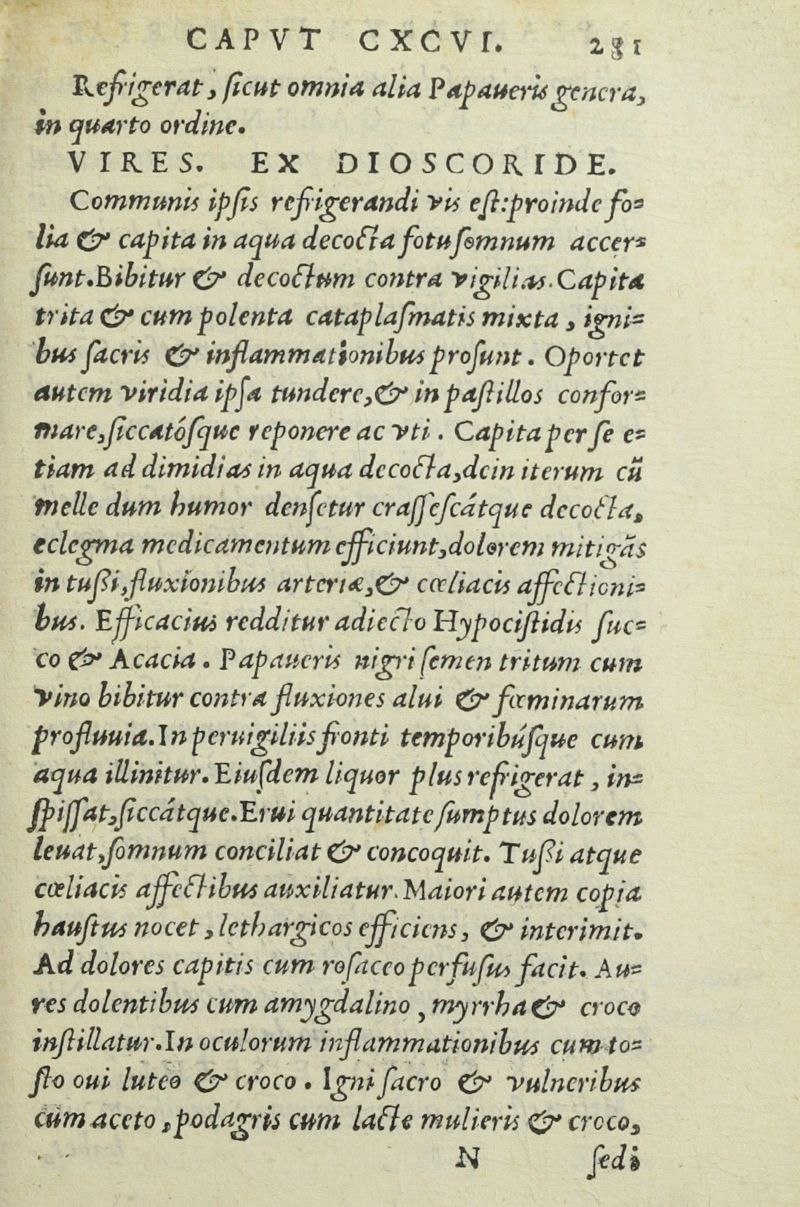 CAPVT CXCVI. 281
Refrigerat, ſicut omnia alia Papaueris genera,
in quarto ordine.
VIRES. EX DIOSCORIDE.
Communis ipſis refrigerandi vis eſt: proinde fo-
lia & capita in aqua decocta fotu ſomnum accer-
ſunt. Bibitur & decoctum contra vigilias. Capita
trita & cum polenta cataplaſmatis mixta, igni-
bus ſacris & inflammationibus proſunt. Oportet
autem viridia ipſa tundere, & in paſtillos confor-
mare, ſiccatóſque reponere ac vti. Capita per ſe e-
tiam ad dimidias in aqua decocta, dein iterum cū
melle dum humor denſetur craſſeſcátque decocta,
eclegma medicamentum efficiunt, dolorem mitigãs
in tußi, fluxionibus arteriæ, & cœliacis affectioni-
bus. Efficacius redditur adiecto Hypociſtidis ſuc-
co & Acacia. Papaueris nigri ſemen tritum cum
vino bibitur contra fluxiones alui & fœminarum
profluuia. In peruigiliis fronti temporibúſque cum
aqua illinitur. Eiuſdem liquor plus refrigerat, in-
ſpiſſat, ſiccátque. Erui quantitate ſumptus dolorem
leuat, ſomnum conciliat & concoquit. Tußi atque
cœliacis affectibus auxiliatur. Maiori autem copia
hauſtus nocet, lethargicos efficiens, & interimit.
Ad dolores capitis cum roſaceo perfuſus facit. Au-
res dolentibus cum amygdalino, myrrha & croco
inſtillatur. In oculorum inflammationibus cum to-
ſto oui luteo & croco. Igni ſacro & vulneribus
cùm aceto, podagris cum lacte mulieris & croco,
N ſedi